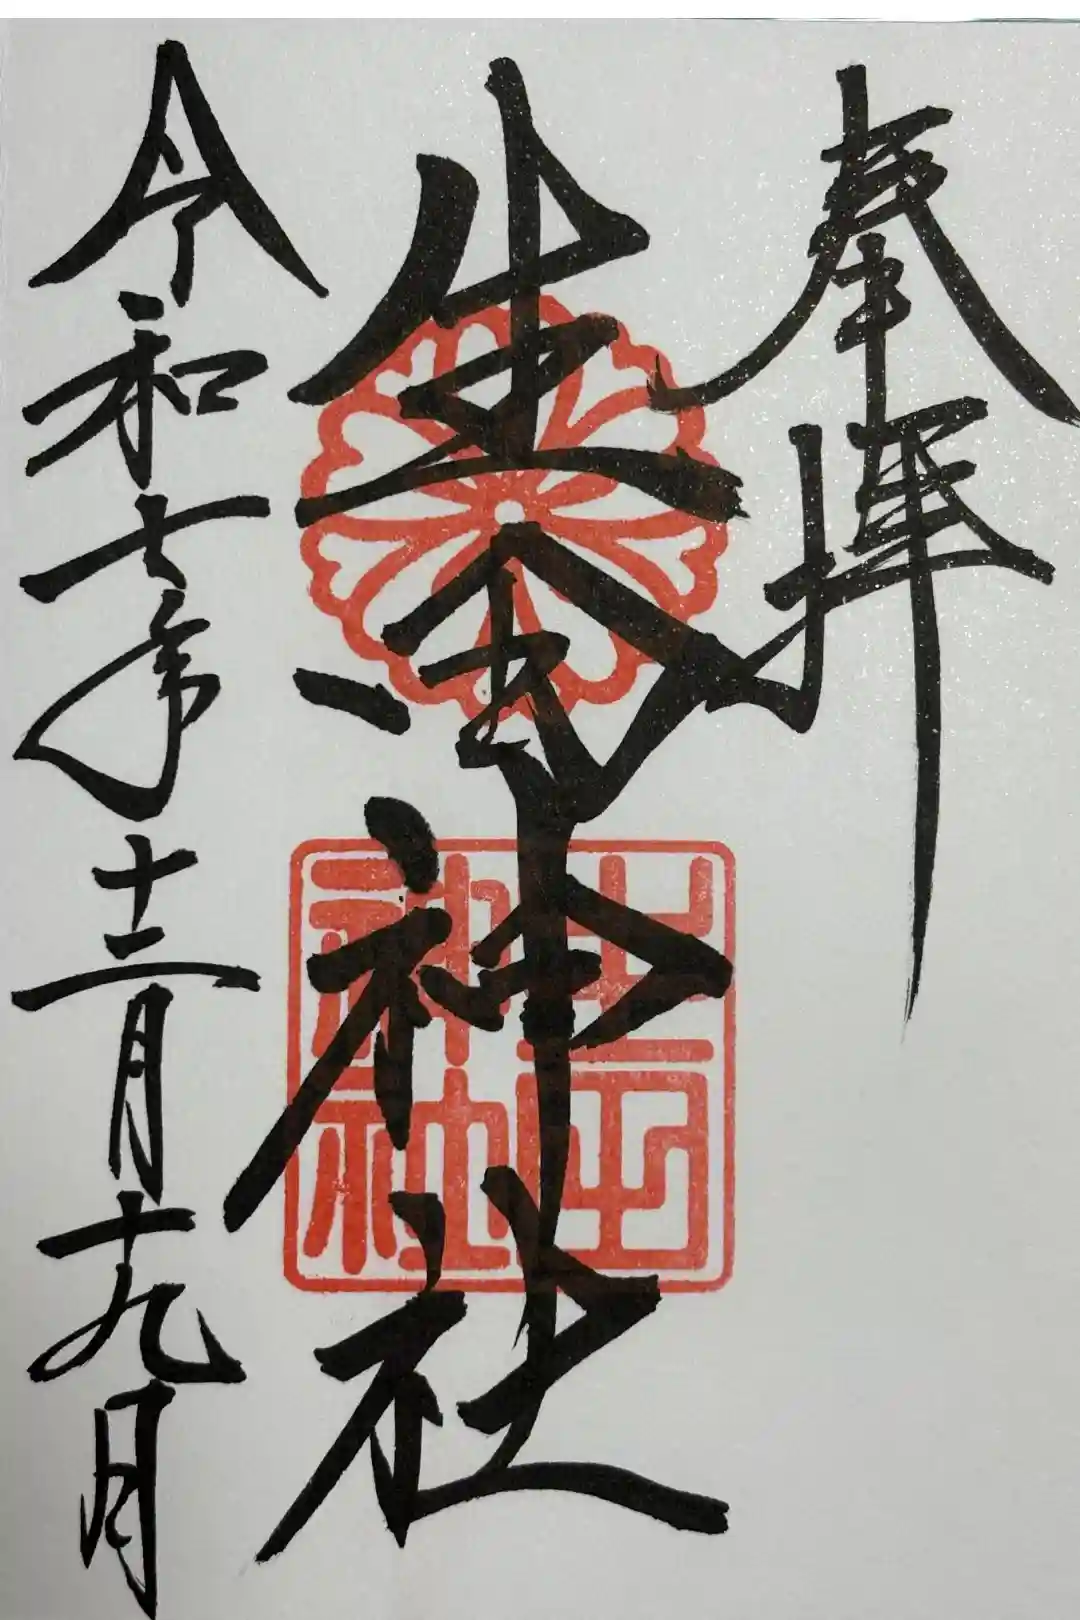 奉拝
生岡神社
令和七年十二月十九日
生岡
神社